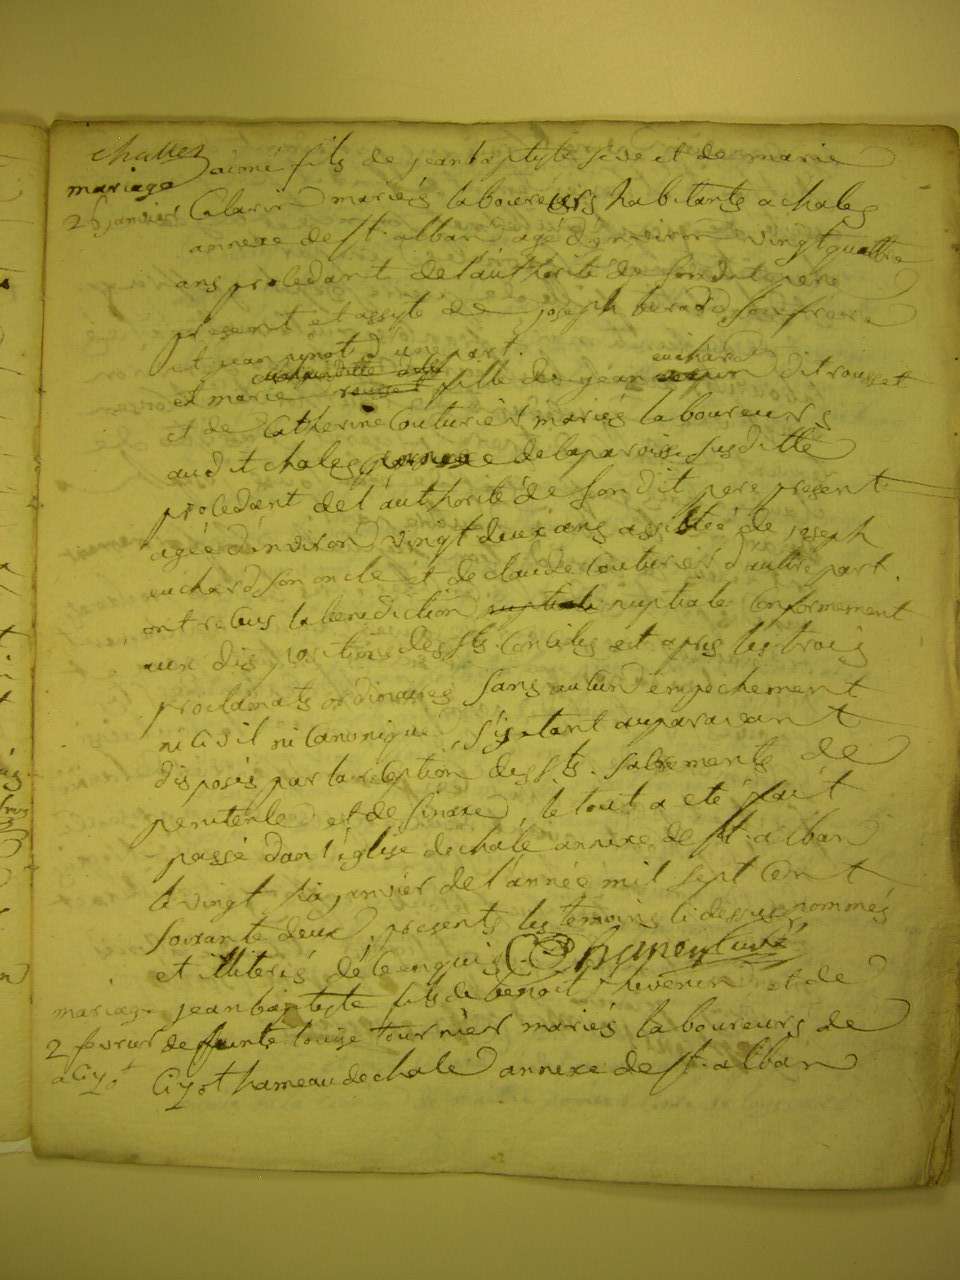 chales
mariage
26 janvier
aimé fils de jean baptyste seve et de marie
Calarin mariés laboureurs habitants a chales
annexe de st. alban agé d'environ vingt quattre
ans procedant de l'authorité de son dit pere
present et assysté de joseph son frere
et jean d'une part.
et marie fille de jean euchard dit rousset
et de Catherine Couturier mariés laboureurs
audit chales annexe de la paroisse susditte
procedant de l'authorité de son dit pere present
agée d'environ vingt deux ans assistée de joseph
euchard son oncle et de claude Couturier d'autre part
ont recus la benediction nuptiale nuptiale Conformement
aux dispositions des sts. Conciles et apres les trois
proclamats ordinaires sans aucun empechement
ni civil ni Canonique, s'y etant auparavant
disposés par la reception des sts. sacrements de
penitence et de sinaxe, le tout a eté fait
passé dans l'église de chale annexe de st. alban
le vingt six janvier de l'année mil sept Cent
soixante deux, presents les temoins ci dessus nommés
et illiterés de ce enquis curé
mariage
2 fevrier
a Cizot
jean baptyste fils de benoit thevenin et de
deffunte louise tournier mariés laboureurs de
Cizot hameau de chale annexe de st. alban